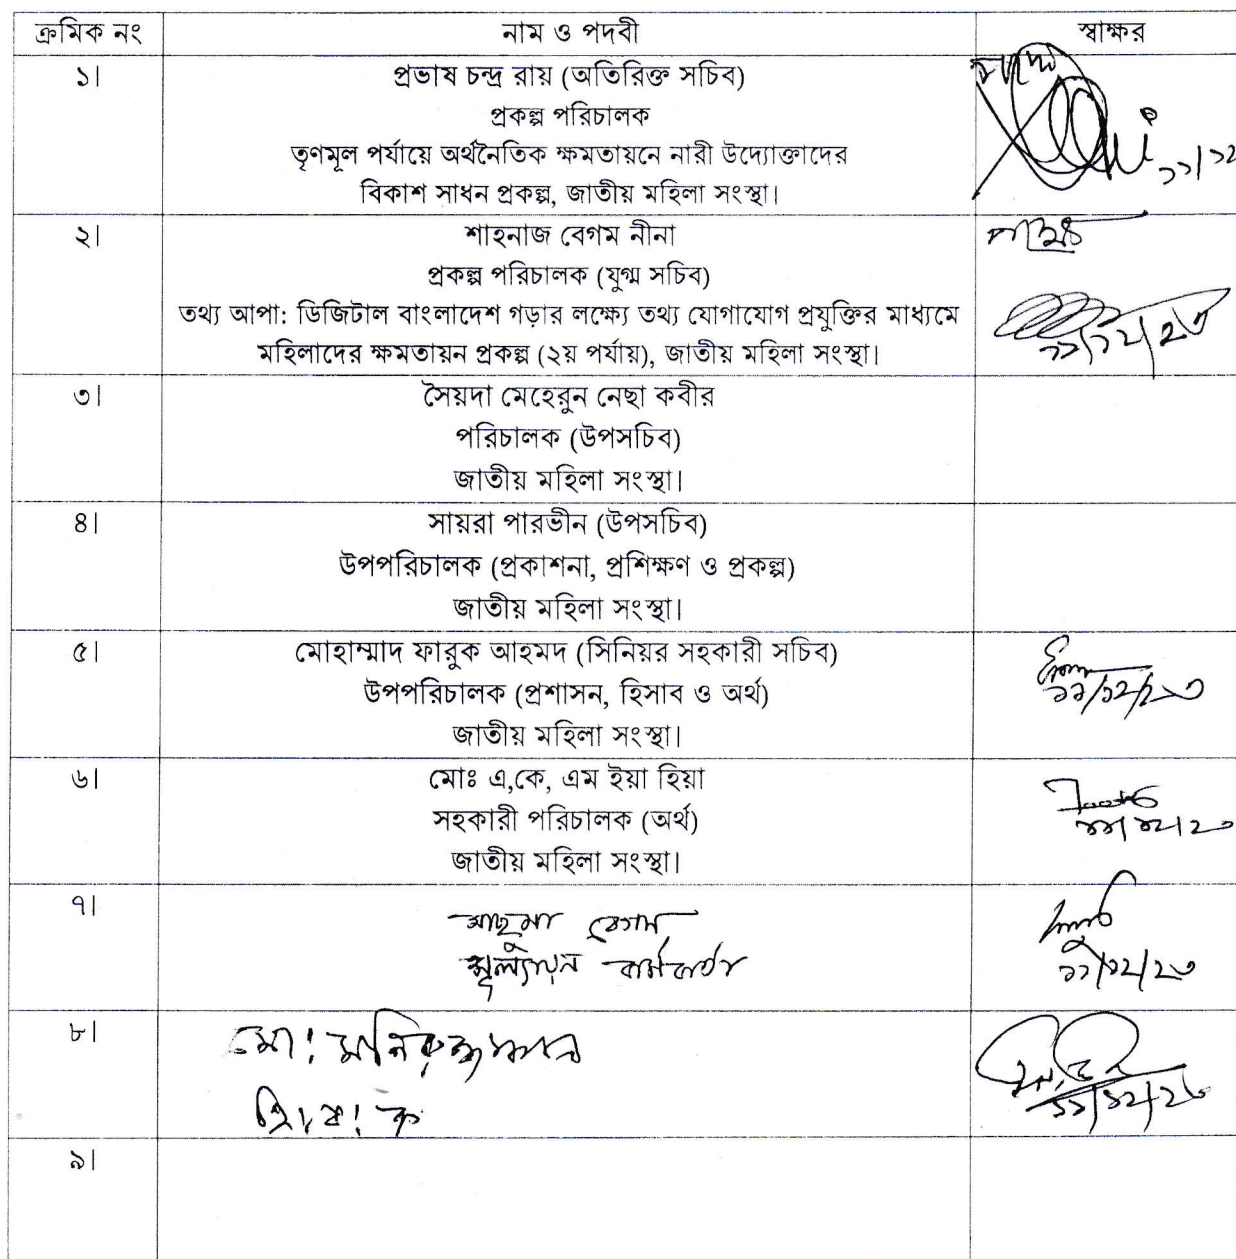 ক্রমিক নং নাম ও পদবী স্বাক্ষর
১। প্রভাষ চন্দ্র রায় (অতিরিক্ত সচিব)
প্রকল্প পরিচালক
তৃণমূল পর্যায়ে অর্থনৈতিক ক্ষমতায়নে নারী উদ্যোক্তাদের
বিকাশ সাধন প্রকল্প, জাতীয় মহিলা সংস্থা।
১১/১২
২। শাহনাজ বেগম নীনা
প্রকল্প পরিচালক (যুগ্ম সচিব)
তথ্য আপা: ডিজিটাল বাংলাদেশ গড়ার লক্ষ্যে তথ্য যোগাযোগ প্রযুক্তির মাধ্যমে
মহিলাদের ক্ষমতায়ন প্রকল্প (২য় পর্যায়), জাতীয় মহিলা সংস্থা।
১১/১২/২৩
৩। সৈয়দা মেহেরুন নেছা কবীর
পরিচালক (উপসচিব)
জাতীয় মহিলা সংস্থা।
৪। সায়রা পারভীন (উপসচিব)
উপপরিচালক (প্রকাশনা, প্রশিক্ষণ ও প্রকল্প)
জাতীয় মহিলা সংস্থা।
৫। মোহাম্মাদ ফারুক আহমদ (সিনিয়র সহকারী সচিব)
উপপরিচালক (প্রশাসন, হিসাব ও অর্থ) ১১/১২/২৩
জাতীয় মহিলা সংস্থা।
৬। মোঃ এ,কে, এম ইয়া হিয়া
সহকারী পরিচালক (অর্থ) ১১/১২/২৩
জাতীয় মহিলা সংস্থা।
৭। মাছুমা বেগম
মূল্যায়ন কর্মকর্তা ১১/১২/২৩
৮। মো: মনিরুজ্জামান
১১/১২/২৩
৯।